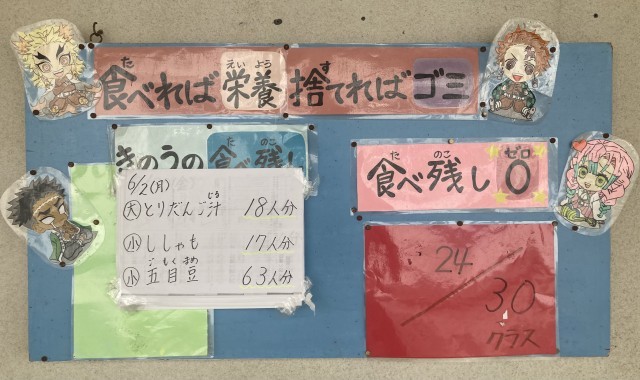 食べれば栄養捨てればゴミ
きのうの食べ残し
食べ残し0
6/2(月)
大 とりだんご汁 18人分
小 ししゃも 17人分
小 五目豆 63人分
24/30
クラス